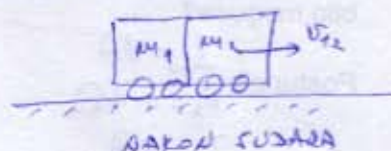 m₁ m₂ v₁₂
NAKON SUDARA